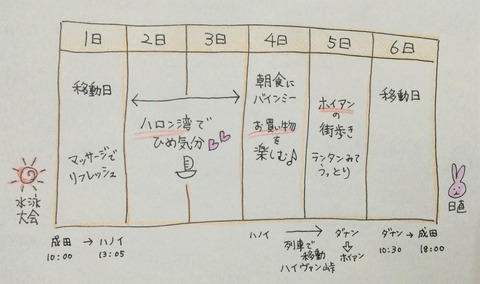 1日
2日
3日
4日
5日
6日
移動日
マッサージで
リフレッシュ
ハロン湾で
ひめ気分
朝食に
バインミー
お買い物
を
楽しむ♪
ホイアン
の
街歩き
ランタンみて
うっとり
移動日
水泳
大会
日直
成田 → ハノイ
10:00 13:05
ハノイ → ダナン
列車で
移動
ハイヴァン峠
⇩
ホイアン
ダナン → 成田
10:30 18:00